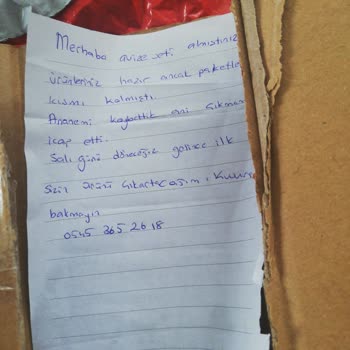 Merhaba avize seti almıştınız
ürünleriniz hazır ancak paketle
kısmı kalmıştı.
Annemi kaybettik ani çıkmam
icap etti.
Salı günü döneceğiz gelince ilk
Sizin ürünü çıkartacağım, Kusura
bakmayın
0545 365 26 18